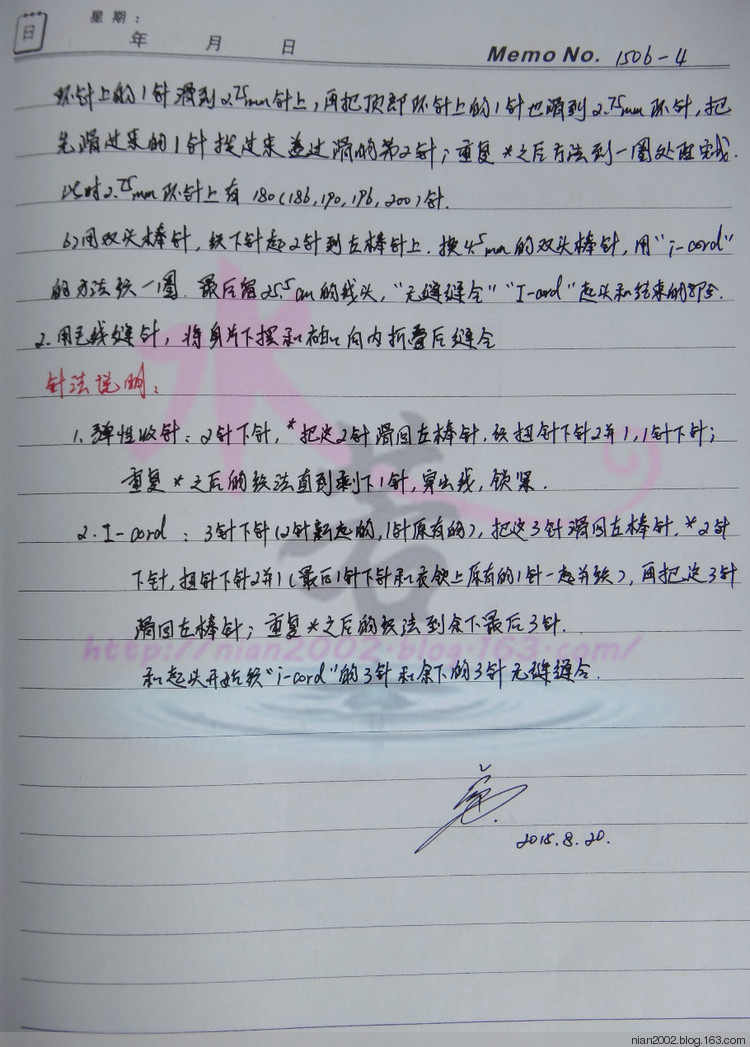 日
星期:
年 月 日
Memo No. 1506-4
环针上的1针滑到2.75mm针上,再把顶部环针上的1针也滑到2.75mm环针,把
先滑过来的1针拨过来盖过滑的第2针;重复*之后方法到一圈处理完成.
此时2.75mm环针上有180(186,190,196,200)针.
b)用双头棒针,织下针起2针到左棒针上.换4.5mm的双头棒针,用"i-cord"
的方法织一圈.最后留25.5cm的线头,"无缝缝合""I-cord"起头和结束的部分.
2.用毛线缝针,将身片下摆和袖口向内折叠后缝合
针法说明:
1.弹性收针:2针下针,*把这2针滑回左棒针,织扭针下针2并1,1针下针;
重复*之后的织法直到剩下1针,穿出线,锁紧.
2.I-cord:3针下针(2针新起的,1针原有的),把这3针滑回左棒针.*2针
下针,扭针下针2并1(最后1针下针和衣领上原有的1针一起并织),再把这3针
滑回左棒针;重复*之后的织法到余下最后3针.
和起头开始织"i-cord"的3针和余下的3针无缝缝合.
水
若
http://nian2002.blog.163.com/
2015.8.20.
nian2002.blog.163.com